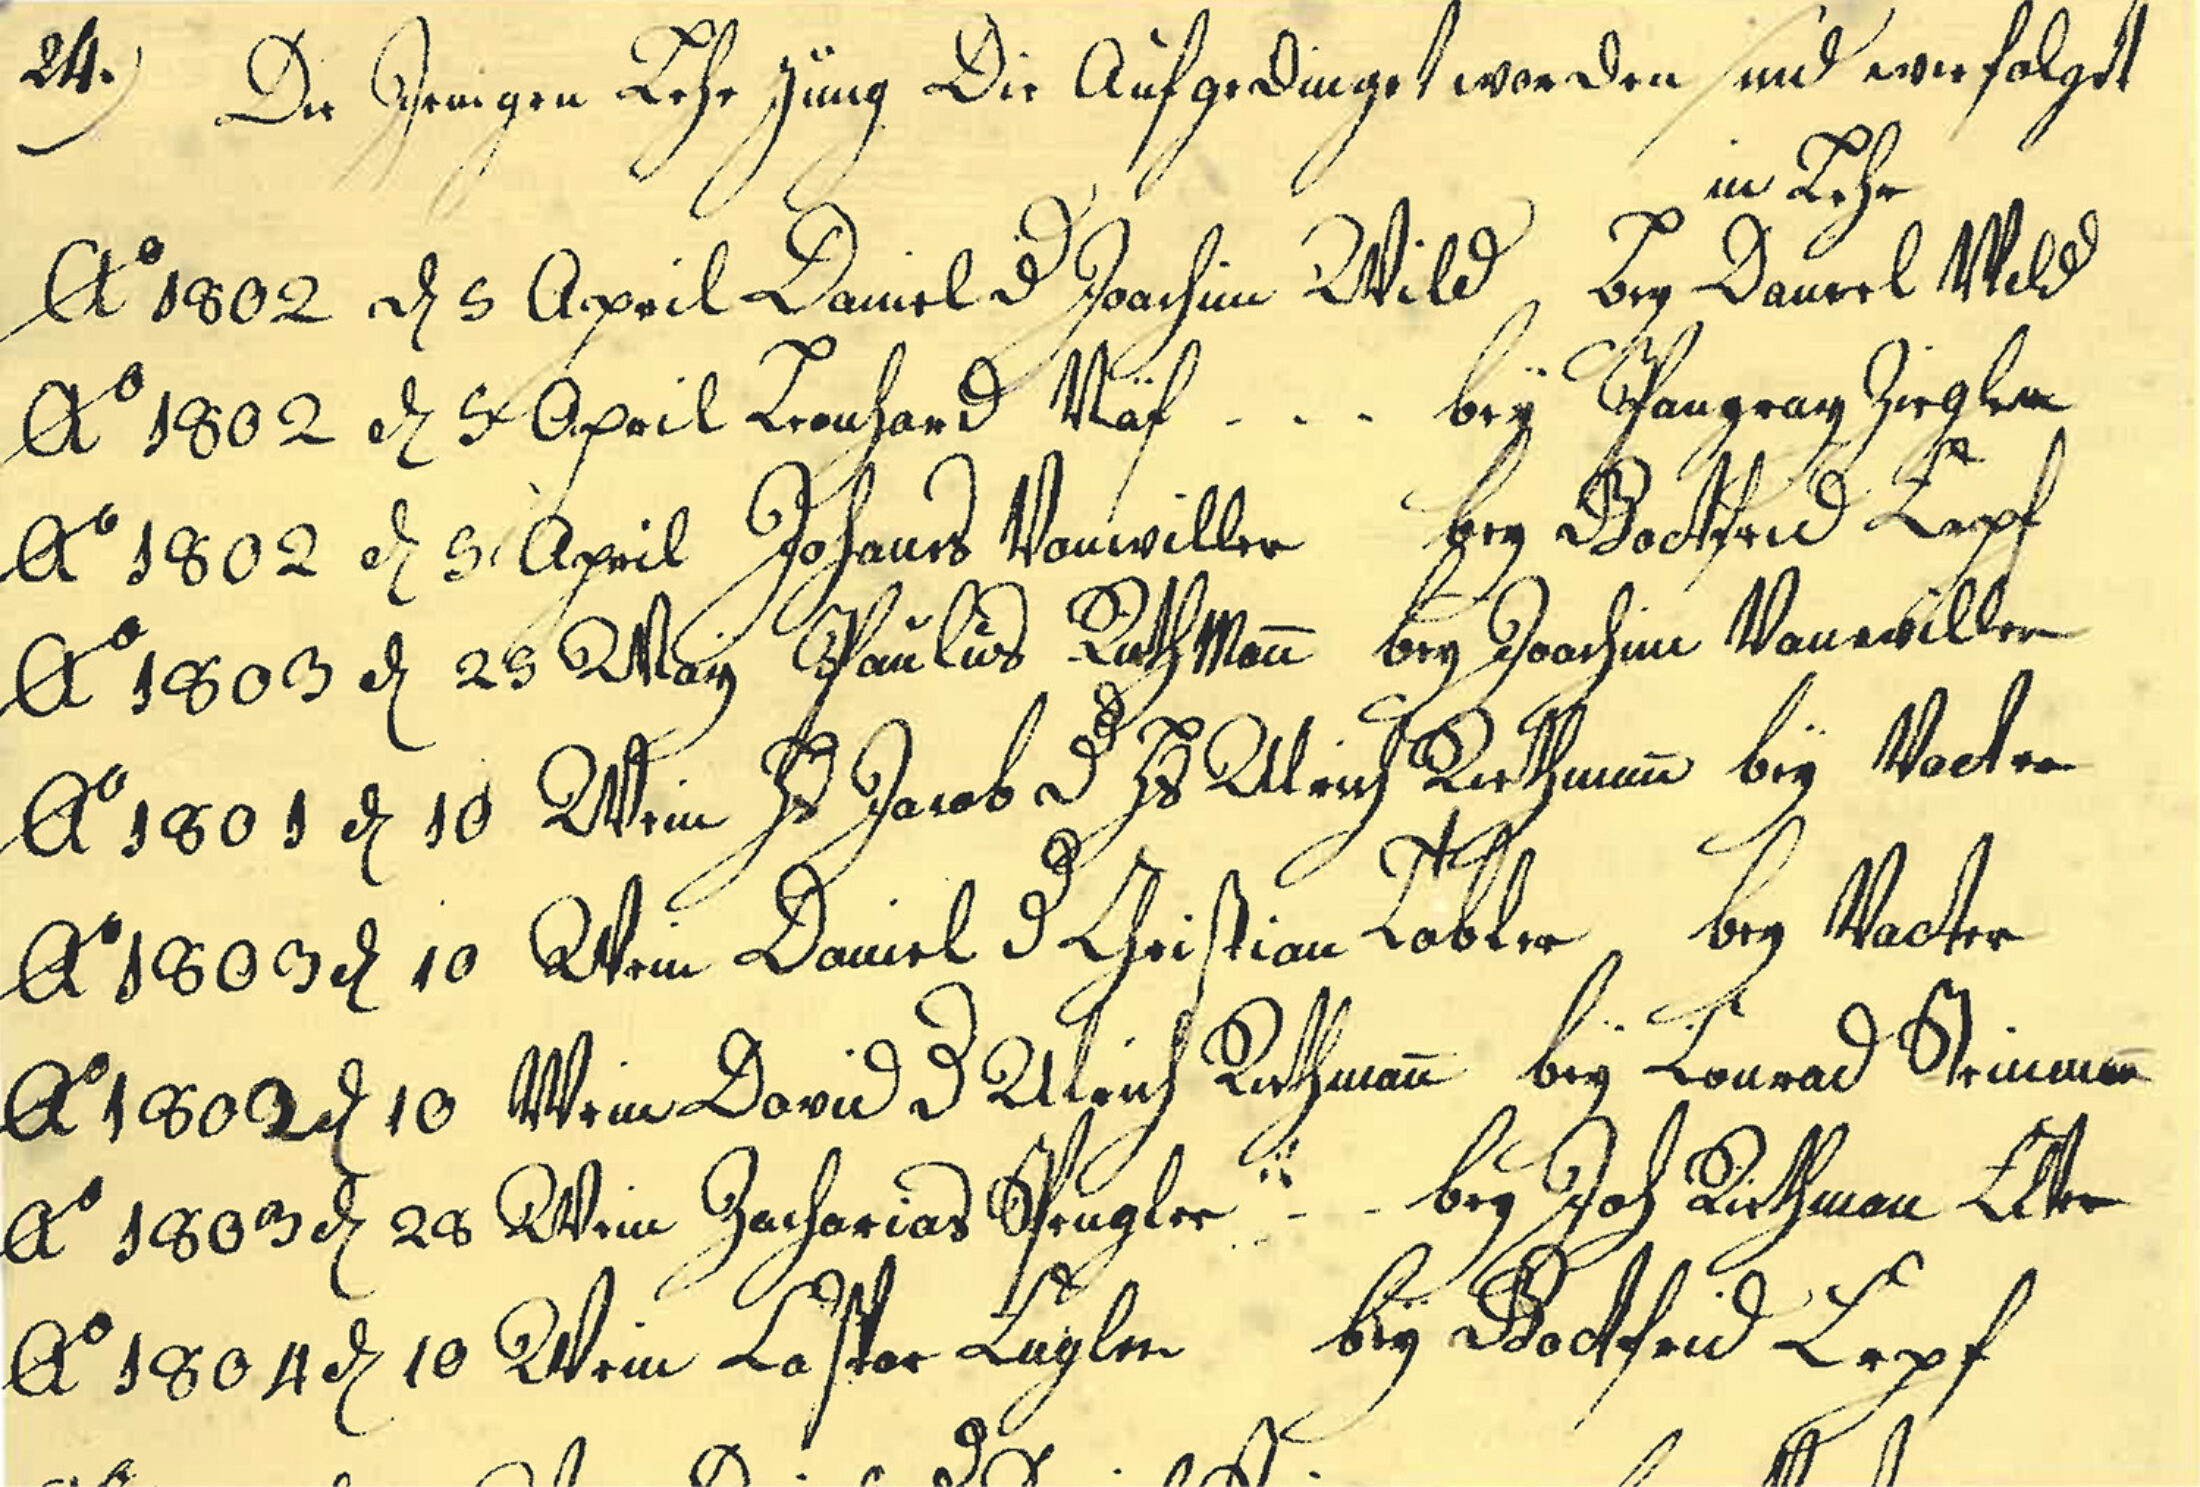 24.) Die Jenigen Lehr Jung Die Aufgedinget worden sind wie folget
in Lehr
Aº 1802 d 5 April Daniel d Joachim Wild bey Daniel Wild
Aº 1802 d 5 April Leonhard Näf - - - bey Pangraz Ziegler
Aº 1802 d 5 April Johanes Vonwiller bey Gottfrid Lepf
Aº 1803 d 25 May Paulus Riethman̄ bey Joachim Vonwiller
Aº 1801 d 10 Wein Hs Jacob d Hs Ulrich Riethman̄ bey Vatter
Aº 1803 d 10 Wein Daniel d Christian Tobler bey Vatter
Aº 1802 d 10 Wein David d Ulrich Riethman̄ bey Conrad
Aº 1803 d 28 Wein Zacharias Spengler - - bey Joh Riethman Elter
Aº 1804 d 10 Wein Caspar Kugler bey Gottfrid Lepf